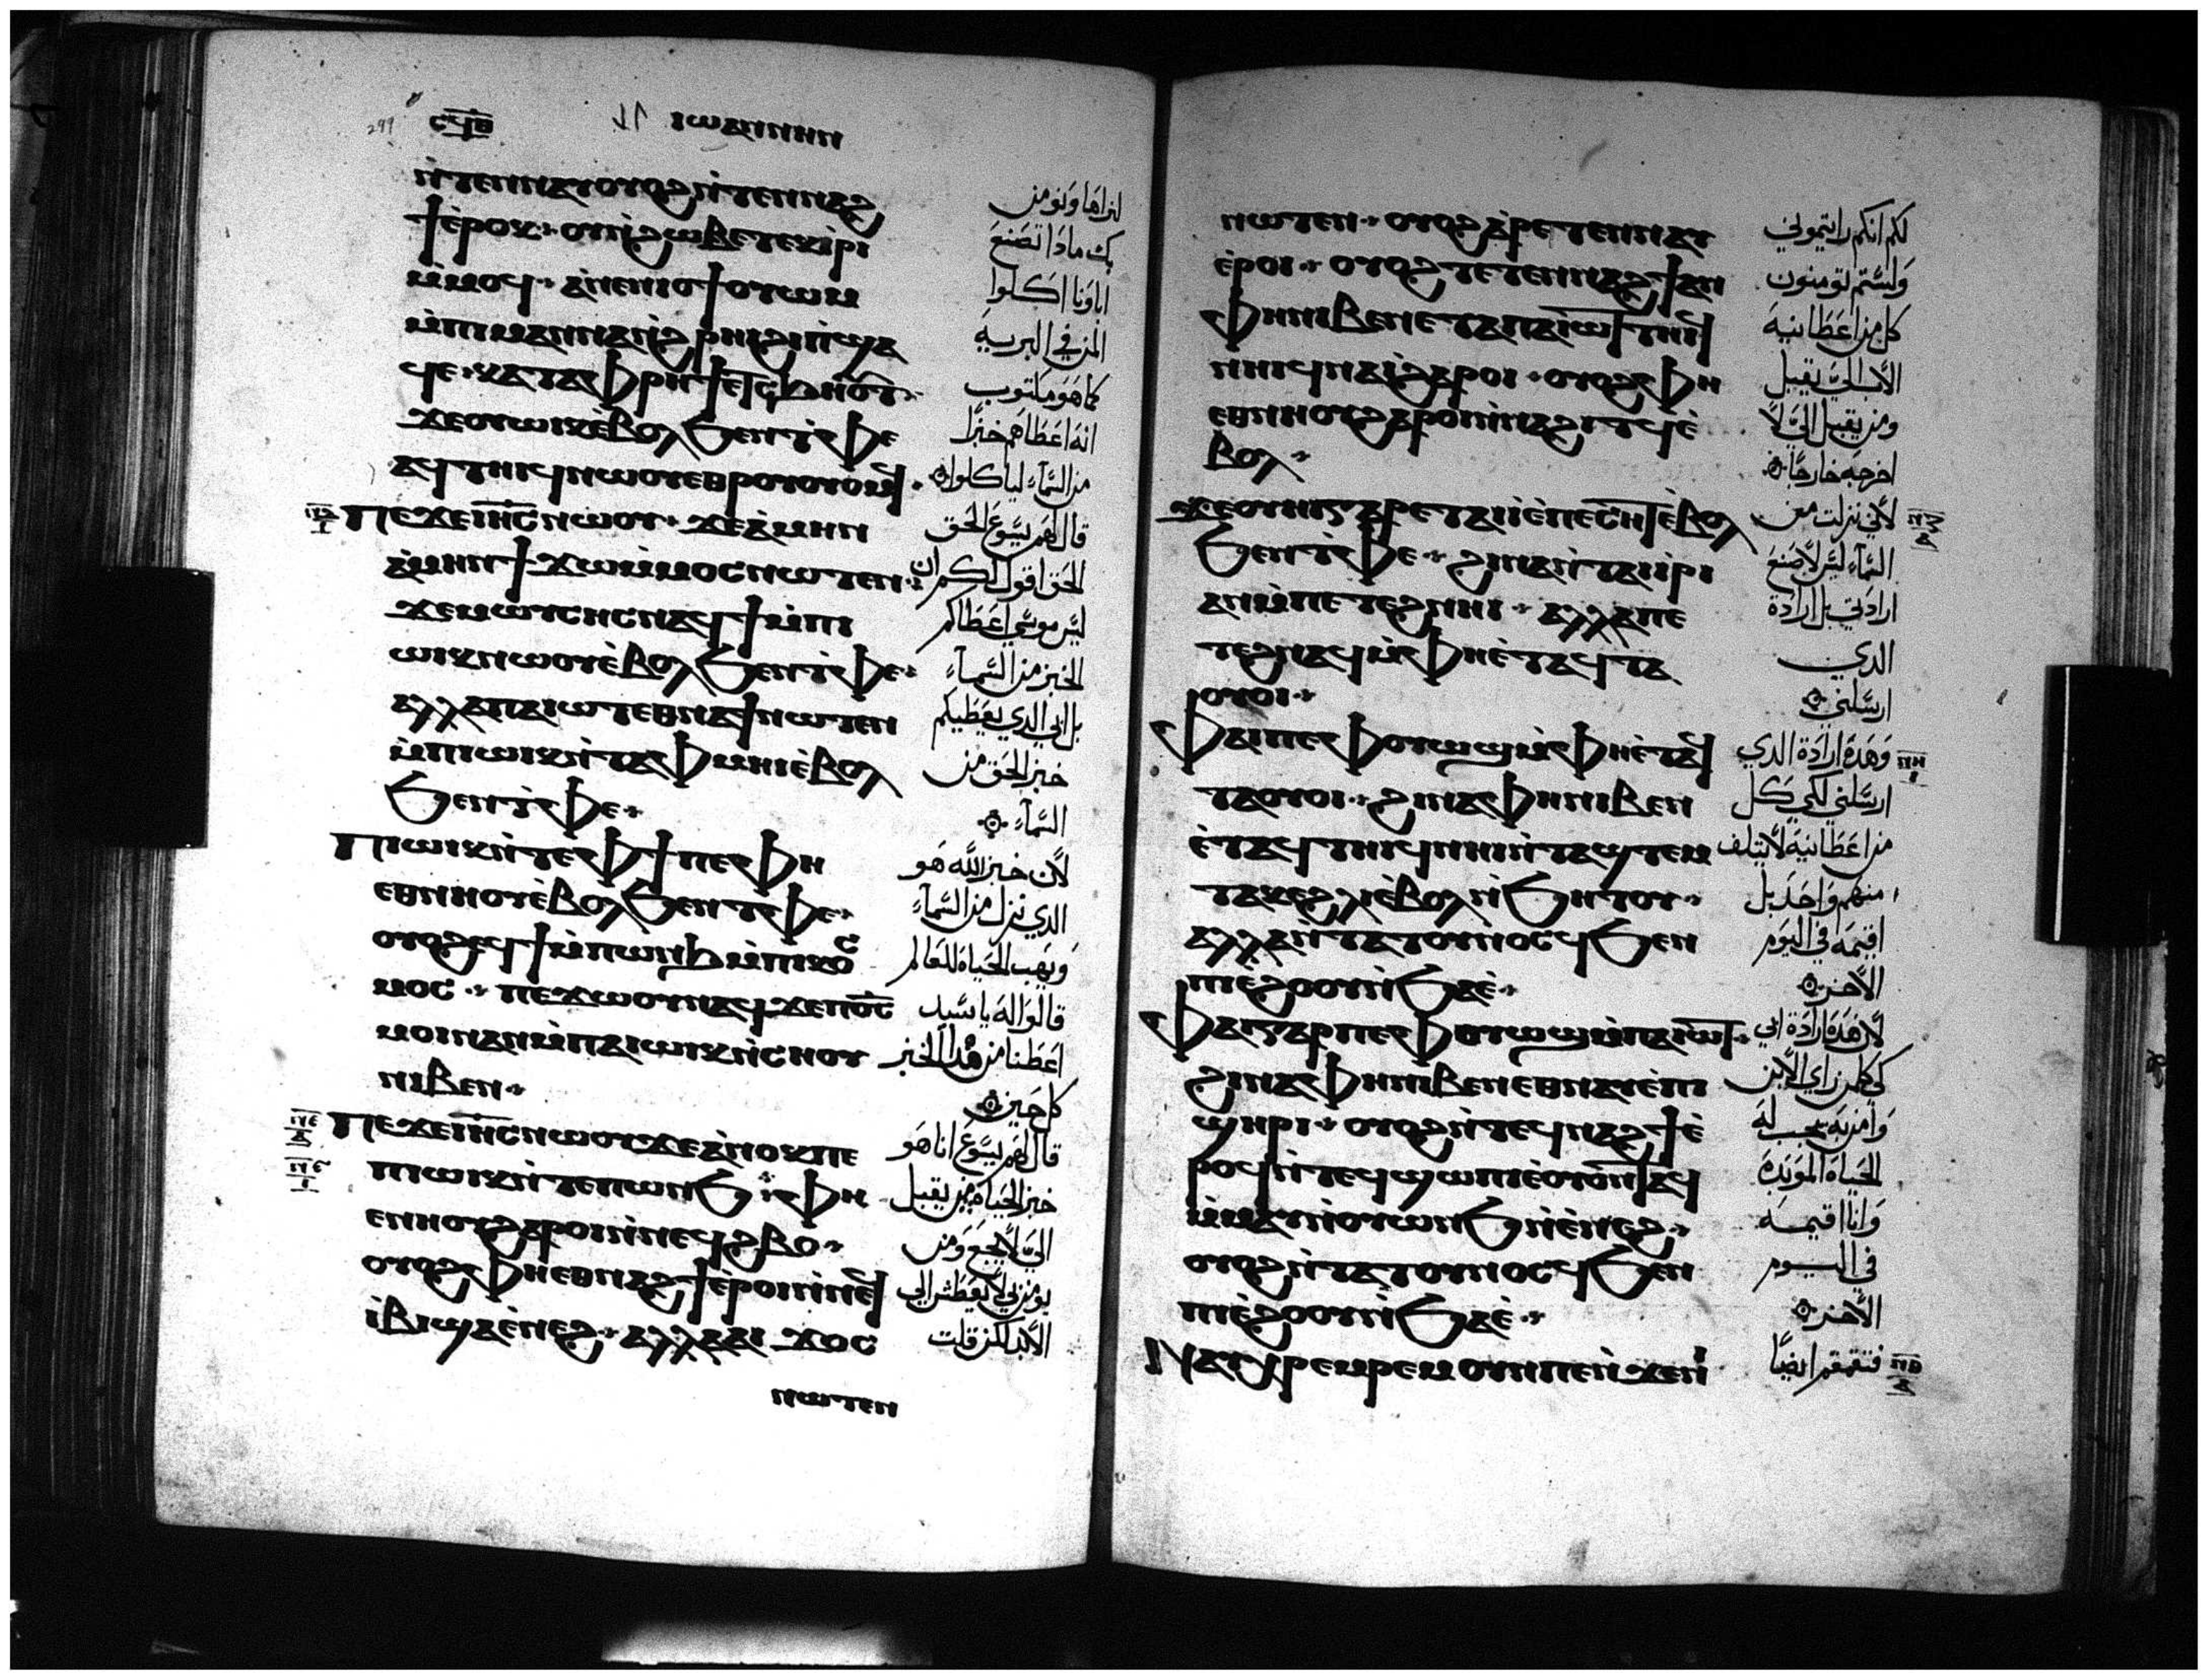 299
ⲥϥⲑ
ⲓⲱⲁⲛⲛⲏⲛ
ⲛ̀ⲧⲉⲛⲛⲁⲩⲟⲩⲟϩⲛ̀ⲧⲉⲛⲛⲁϩ
ϯⲉ̀ⲣⲟⲕ ⲟⲩⲡⲉ̀ϩⲱⲃⲉⲧⲉⲕⲓ̀ⲣⲓ
ⲙ̀ⲙⲟϥ ⲁ̀ⲛⲉⲛⲓⲟϯⲟⲩⲱⲙ
ⲙ̀ⲡⲓⲙⲁⲛⲛⲁⲛ̀ϩⲣⲏⲓϩⲓⲡ̀ϣⲁ
ϥⲉ ⲕⲁⲧⲁⲫⲣⲏϯⲉⲧⲥϧⲏⲟⲩⲧ
ϫⲉⲟⲩⲱⲓⲕⲉ̀ⲃⲟⲗϧⲉⲛⲧ̀ⲫⲉ
ⲁϥⲧⲏⲓϥⲛⲱⲟⲩⲉⲑⲣⲟⲩⲟⲩⲟⲙϥ
ⲡⲉϫⲉⲓⲏⲥⲛⲱⲟⲩ ϫⲉⲁ̀ⲙⲏⲛ
ⲁ̀ⲙⲏⲛϯϫⲱⲙ̀ⲙⲟⲥⲛⲱⲧⲉⲛ
ϫⲉⲙⲱⲩⲥⲏⲥⲛⲁϥϯⲙ̀ⲡⲓ
ⲱⲓⲕⲛⲱⲟⲩⲉ̀ⲃⲟⲗϧⲉⲛⲧ̀ⲫⲉ
ⲁⲗⲗⲁⲡⲁⲓⲱⲧⲉⲑⲛⲁϯⲛⲱⲧⲉⲛ
ⲙ̀ⲡⲓⲱⲓⲕⲛ̀ⲧⲁⲫⲙⲏⲓⲉ̀ⲃⲟⲗ
ϧⲉⲛⲧ̀ⲫⲉ
ⲡⲓⲱⲓⲕⲛ̀ⲧⲉⲫϯⲡⲉⲫⲏ
ⲉⲑⲛⲏⲟⲩⲉ̀ⲃⲟⲗϧⲉⲛⲧⲫⲉ
ⲟⲩⲟϩⲉϥϯⲙ̀ⲡⲱⲛϧⲙ̀ⲡⲓⲕⲟⲥ
ⲙⲟⲥ ⲡⲉϫⲱⲟⲩⲛⲁϥϫⲉⲡⲟⲥ
ⲙⲟⲓⲛⲁⲛⲙ̀ⲡⲁⲓⲱⲓⲕⲛ̀ⲥⲏⲟⲩ
ⲛⲓⲃⲉⲛ
ⲡⲉϫⲉⲓⲏⲥⲛⲱⲟⲩϫⲉⲁ̀ⲛⲟⲕⲡⲉ
ⲡⲓⲱⲓⲕⲛ̀ⲧⲉⲡⲱⲛϧ ⲫⲏ
ⲉⲛⲏⲟⲩϩⲁⲣⲟⲓⲛ̀ⲛⲉϥϩⲃⲟ
ⲟⲩⲟϩⲫⲏⲉⲑⲛⲁϩϯⲉ̀ⲣⲟⲓⲛ̀ⲛⲉϥ
ⲓ̀ⲃⲓϣⲁⲉ̀ⲛⲉϩ ⲁⲗⲗⲁⲁⲓ ϫⲟⲥ
ⲛⲱⲧⲉⲛ
لنراها ونومن
بك ماذا تصنع
اباونا اكلوا
المن في البرية
كما هو مكتوب
انه اعطاهم خبزا
من السماء لياكلوا
قال لهم يسوع الحق
الحق اقول لكم ان
ليس موسى اعطاكم
الخبز من السماء
بل ابي الدي يعطيكم
خبز الحق من
السماء
لان خبز الله هو
الدي نزل من السماء
ويهب الحياة للعالم
قالوا له يا سيد
اعطنا من هدا الخبز
كل حين
قال لهم يسوع انا هو
خبز الحياة من يقبل
الي لا يجوع ومن
يومن بي لا يعطش الي
الابد لكن قلت
ⲛⲱⲧⲉⲛ ⲟⲩⲟϩⲁ̀ⲣⲉⲧⲉⲛⲛⲁⲩ
ⲉ̀ⲣⲟⲓ ⲟⲩⲟϩⲧⲉⲧⲉⲛⲛⲁϩϯⲁⲛ
ⲫⲏⲛⲓⲃⲉⲛⲉⲧⲁⲡⲁⲓⲱⲧⲧⲏⲓϥ
ⲛⲏⲓϥⲛⲁⲓ̀ϩⲁⲣⲟⲓ ⲟⲩⲟϩⲫⲏ
ⲉⲑⲛⲏⲟⲩϩⲁⲣⲟⲓⲛ̀ⲛⲁϩⲓⲧϥⲉ̀
ⲃⲟⲗ
ϫⲉⲟⲩⲏⲓⲅⲁⲣⲉⲧⲁⲓⲓ̀ⲉ̀ⲡⲉⲥⲏⲧⲉ̀ⲃⲟⲗ
ϧⲉⲛⲧ̀ⲫⲉ ϩⲓⲛⲁⲛ̀ⲧⲁⲓ̀ⲣⲓ
ⲁⲛⲙ̀ⲡⲉⲧⲉϩⲛⲏⲓ ⲁⲗⲗⲁⲡⲉ
ⲧⲉϩⲛⲁϥⲙ̀ⲫⲏⲉ̀ⲧⲁϥⲧⲁ
ⲟⲩⲟⲓ
ⲫⲁⲓⲡⲉⲫⲟⲩⲱϣⲙ̀ⲫⲏⲉ̀ⲧⲁϥ
ⲧⲁⲟⲩⲟⲓ ϩⲓⲛⲁⲫⲏⲛⲓⲃⲉⲛ
ⲉ̀ⲧⲁϥⲧⲏⲓϥⲛⲏⲓⲛ̀ⲧⲁϣⲧⲉⲙ
ⲧⲁⲕⲉϩⲗⲓⲉ̀ⲃⲟⲗⲛ̀ϧⲏⲧⲟⲩ
ⲁⲗⲗⲁⲛ̀ⲧⲁⲧⲟⲩⲛⲟⲥϥϧⲉⲛ
ⲡⲓⲉ̀ϩⲟⲟⲩⲛ̀ϧⲁⲉ̀
ⲫⲁⲓⲅⲁⲣⲡⲉⲫⲟⲩⲱϣⲙ̀ⲡⲁⲓⲱⲧ
ϩⲓⲛⲁⲫⲏⲛⲓⲃⲉⲛⲉⲑⲛⲁⲩⲉ̀ⲡⲓ
ϣⲏⲣⲓ ⲟⲩⲟϩⲛ̀ⲧⲉϥⲛⲁϩϯⲉ̀
ⲣⲟϥⲛ̀ⲧⲉϥϣⲱⲡⲓⲉ̀ⲟⲩⲟⲛⲧⲁϥ
ⲙ̀ⲙⲁⲩⲛ̀ⲟⲩⲱⲛϧⲛ̀ⲉ̀ⲛⲉϩ
ⲟⲩⲟϩⲛ̀ⲧⲁⲧⲟⲩⲛⲟⲥϥϧⲉⲛ
ⲡⲓⲉ̀ϩⲟⲟⲩⲛ̀ϧⲁⲉ̀
ⲛⲁⲩⲭⲣⲉⲙⲣⲉⲙⲟⲩⲛⲡⲉⲛ̀ϫⲉⲛⲓ
لكم انكم رايتموني
ولستم تومنون
كل من اعطانيه
الاب الي يقبل
ومن يقبل الي لا
اخرجه خارجا
لاني نزلت من
السماء ليس لاصنع
ارادتي بل ارادة
الدي
ارسلني
وهده ارادة الدي
ارسلني لكي كل
من اعطانيه لا يتلف
منهم واحد بل
اقيمه في اليوم
الاخر
لان هده ارادة ابي
كي كل من راي الابن
وامن به تجب له
الحياة الموبدة
وانا اقيمه
في اليوم
الاخر
فتقمقم ايضا